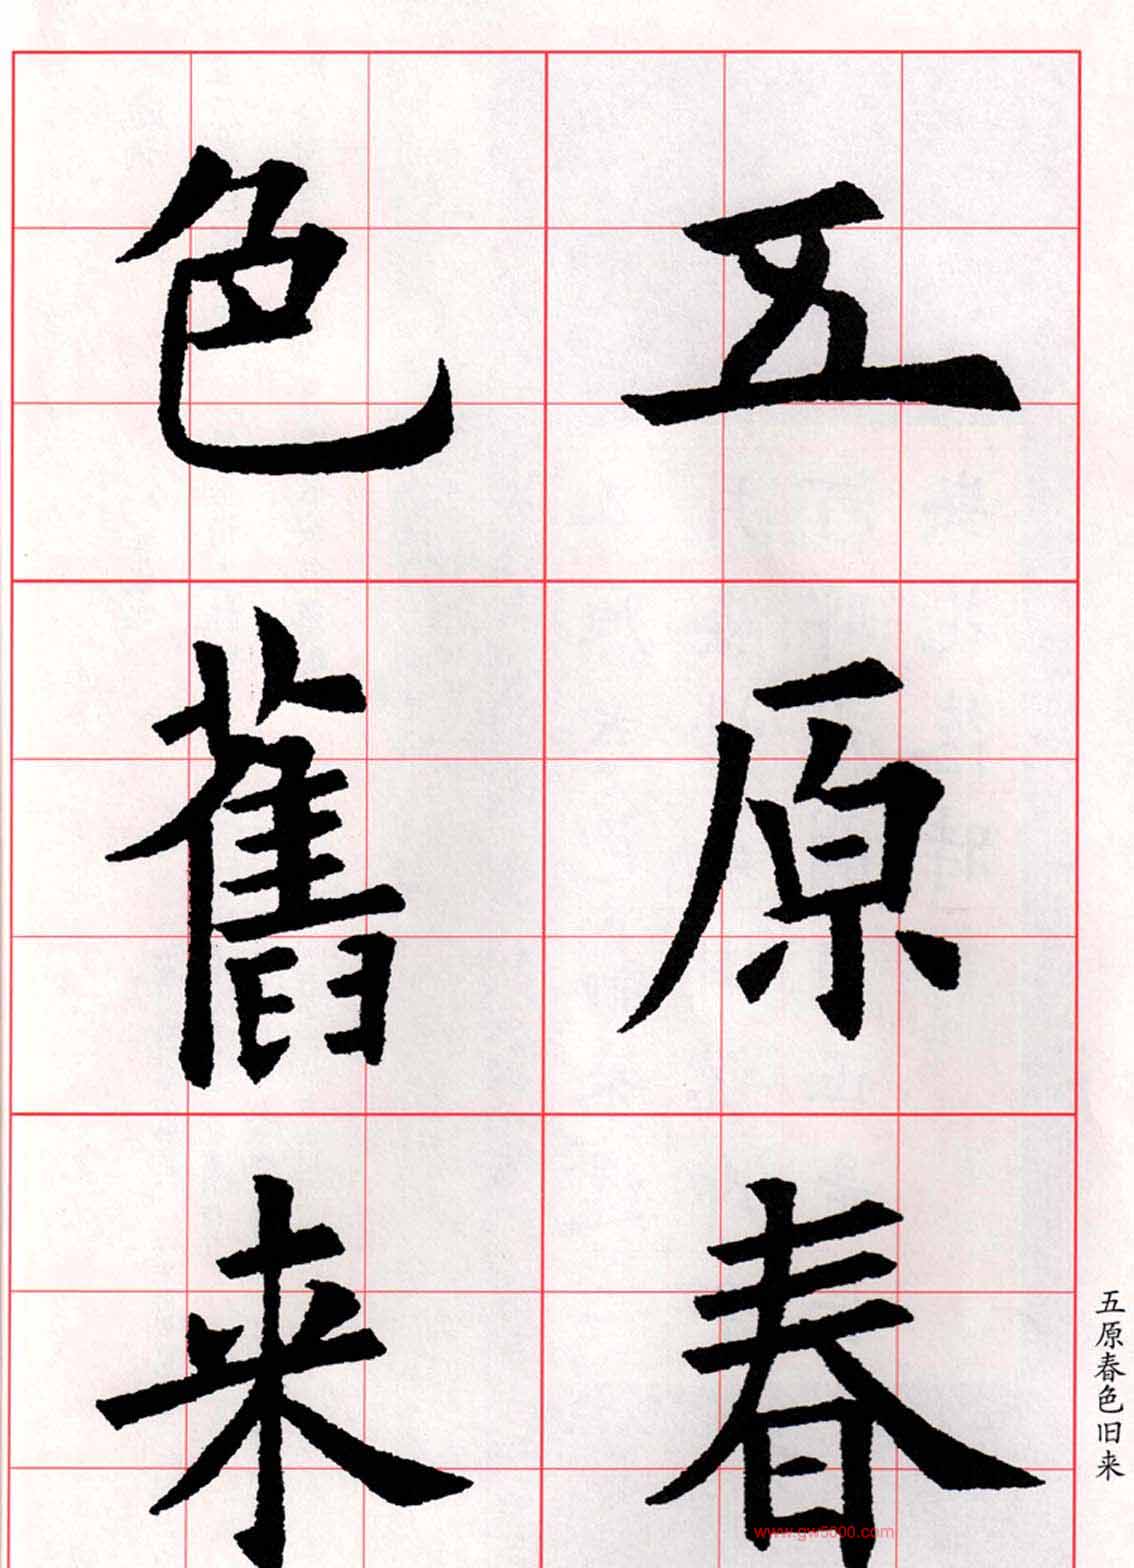 五原春
色舊来
五原春色旧来
www.gw5000.com